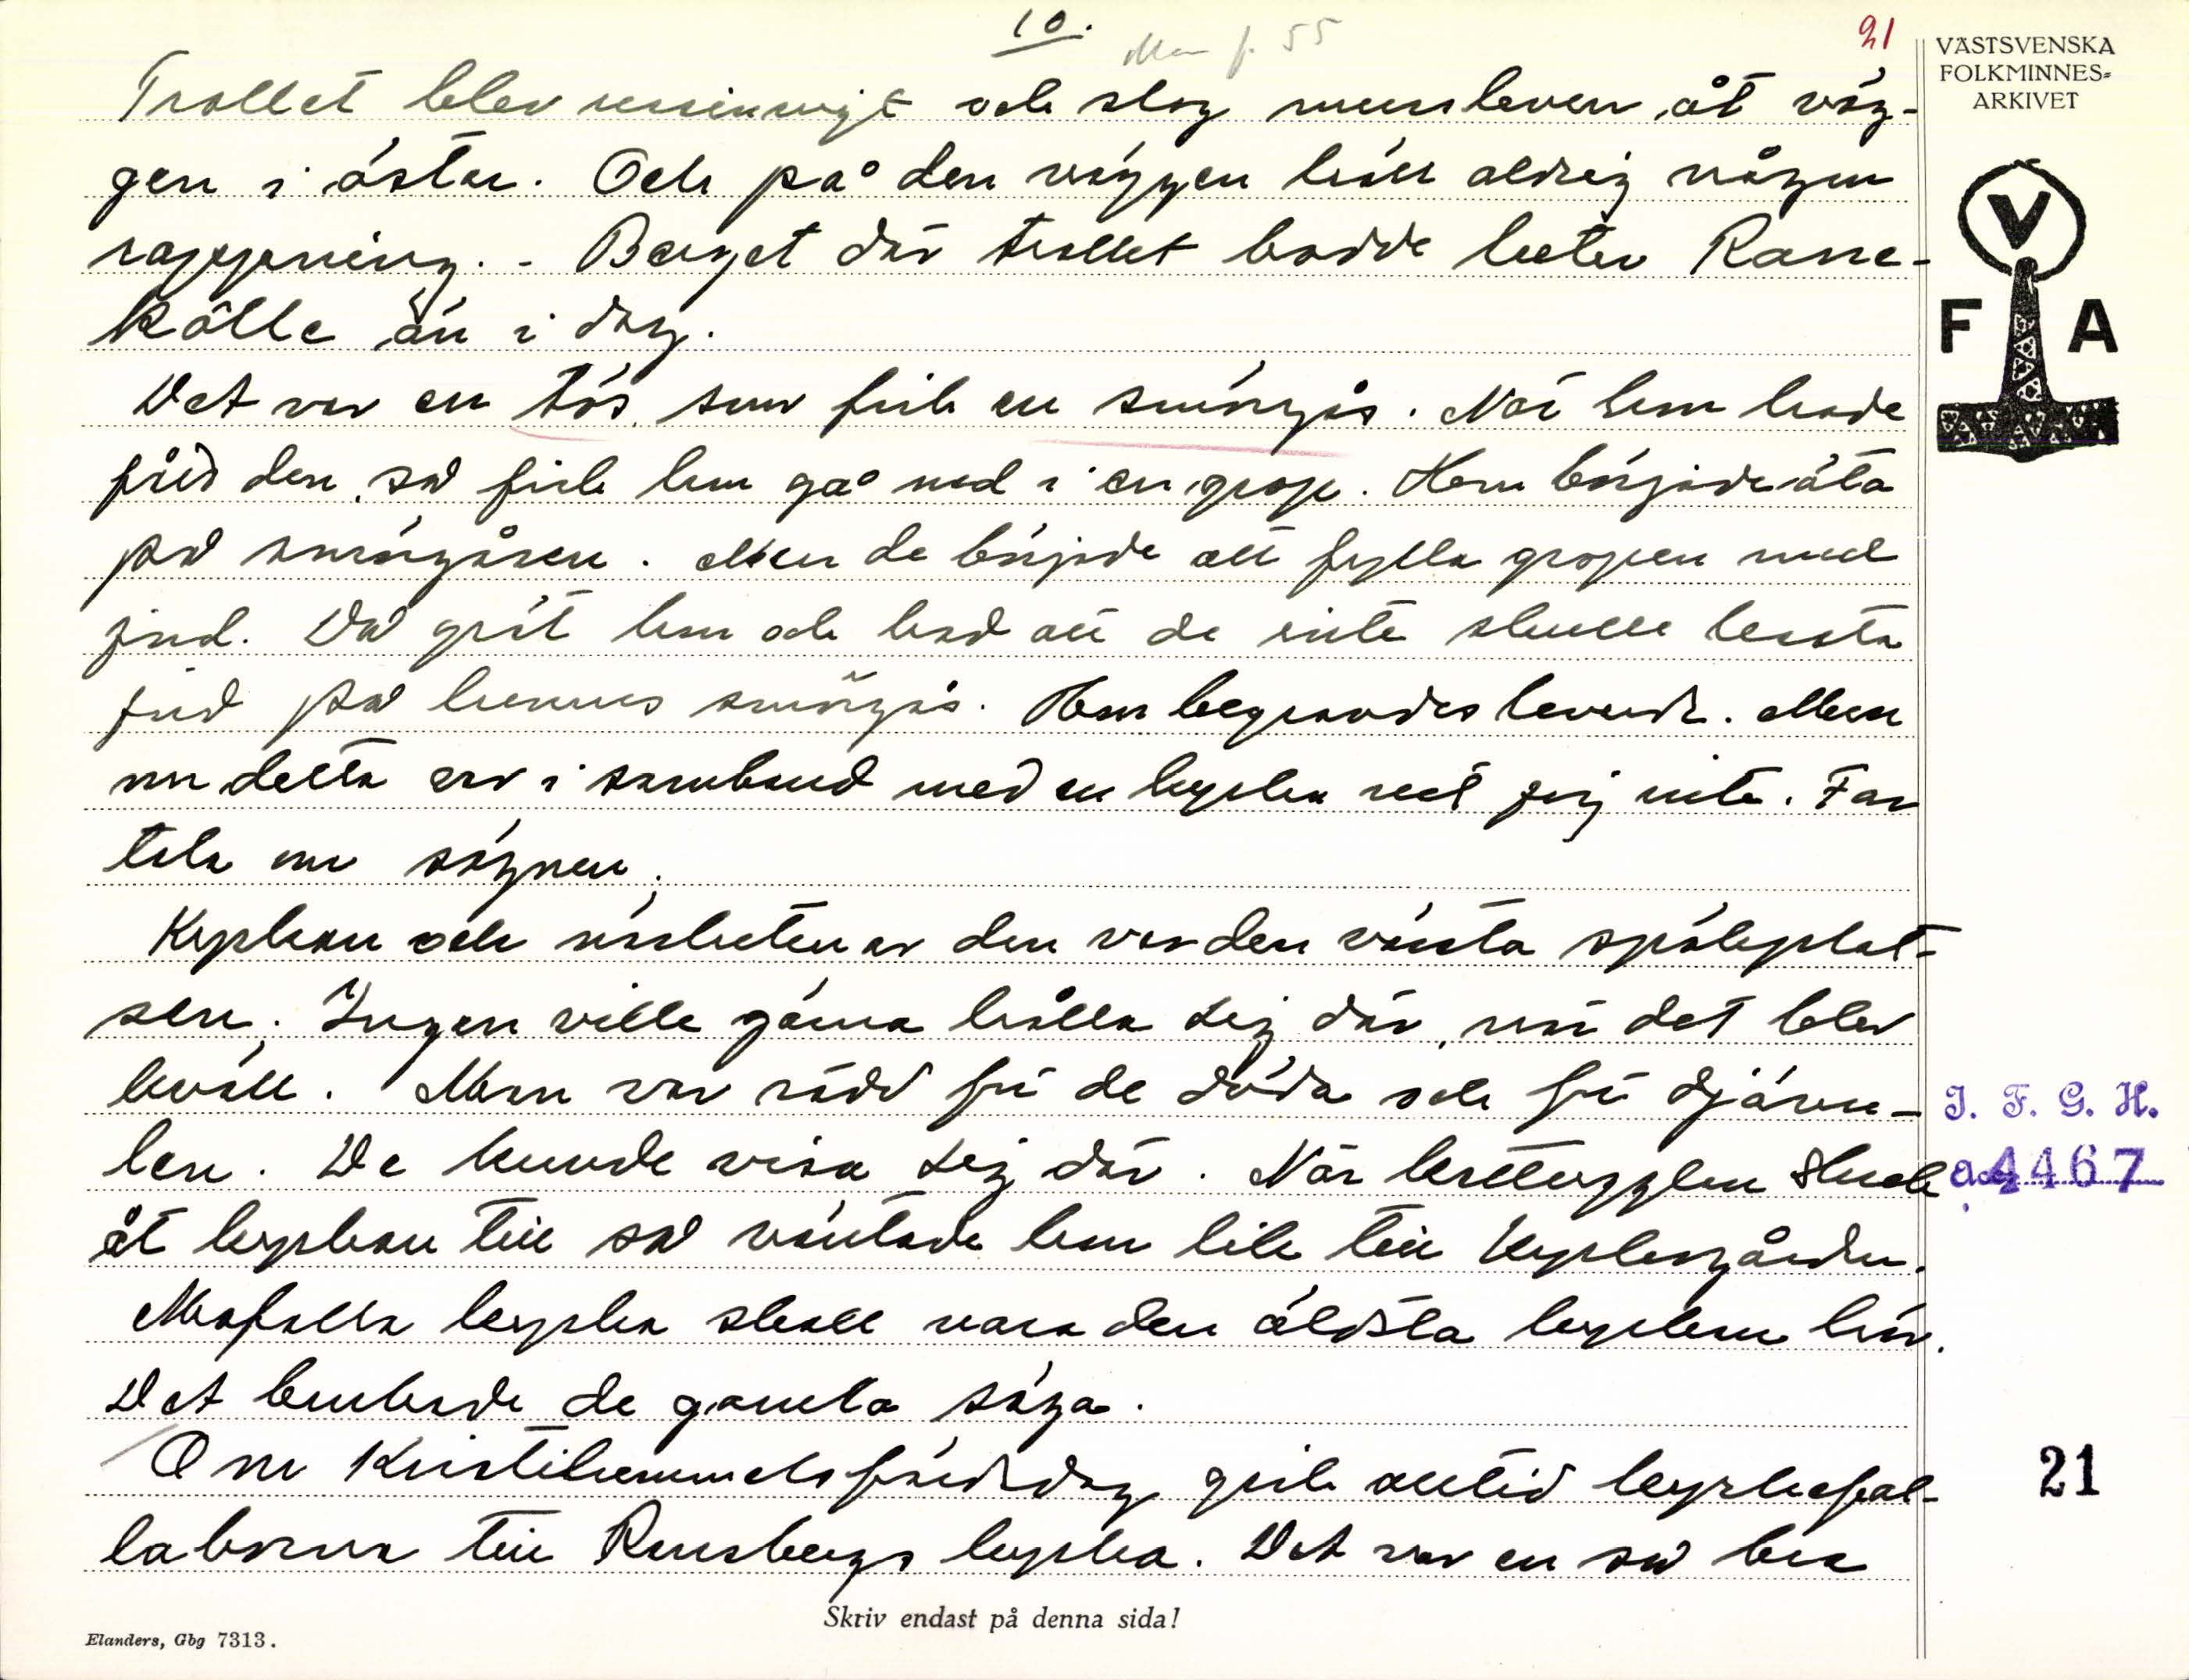 10.
21
VÄSTSVENSKA
FOLKMINNES=
ARKIVET
Trollet blev ursinnigt och slog munsleven åt väg-
gen i öster. Och på den väggen höll aldrig någon
rappning. - Berget där trollet bodde heter Ranne-
källe än i dag.
V
F A
Det var en tös som fick en smörgås. När hon hade
fått den, så fick hon gå ned i en grop. Hon började äta
på smörgåsen. Men de började att fylla gropen med
jord. Då grät hon och bad att de inte skulle kasta
jord på hennes smörgås. Hon begravdes levande. Men
om detta var i samband med en kyrka vet jag inte. Far
tala om sägnen.
Kyrkan och närheten av den var den värsta spökeplat-
sen. Ingen ville gärna hålla sig där, när det blev
kväll. Man var rädd för de döda och för djävu-
len. De kunde visa sig där. När brudföljen skulle
åt kyrkan till så väntade hon lite till kyrkogården.
Marfalla kyrka skall vara den äldsta kyrkan här.
Det brukade de gamla säga.
Om Kristihimmelsfärdsdag gick alltid kyrkefal-
laborna till Ransbergs kyrka. Det var en så bra
J. F. G. H.
acc 4467
21
Skriv endast på denna sida!
Elanders, Gbg 7313.